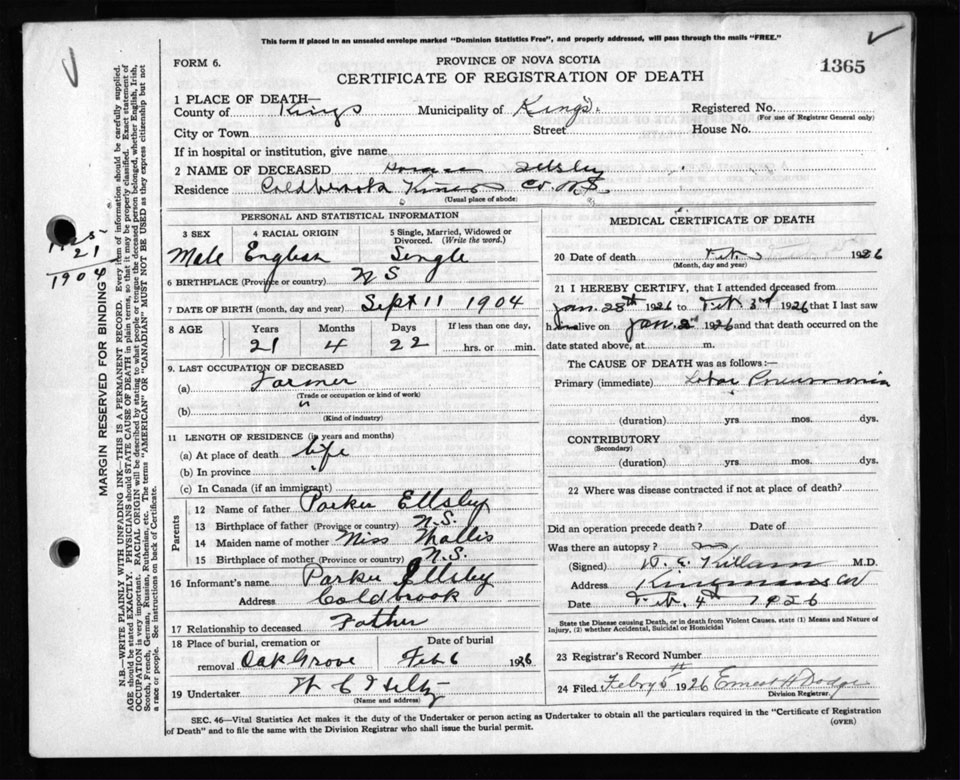 This form if placed in an unsealed envelope marked "Dominion Statistics Free", and properly addressed, will pass through the mails "FREE."
FORM 6.
PROVINCE OF NOVA SCOTIA
1365
CERTIFICATE OF REGISTRATION OF DEATH
1 PLACE OF DEATH—
County of Kings Municipality of Kings. Registered No.
(For use of Registrar General only)
City or Town Street House No.
If in hospital or institution, give name
2 NAME OF DECEASED Ellsby
Residence Coldbrook Kings Co. N.S.
(Usual place of abode)
PERSONAL AND STATISTICAL INFORMATION
3 SEX 4 RACIAL ORIGIN 5 Single, Married, Widowed or Divorced. (Write the word.)
Male English Single
6 BIRTHPLACE (Province or country) N S
7 DATE OF BIRTH (month, day and year) Sept 11 1904
8 AGE Years Months Days If less than one day,
21 4 22 hrs. or min.
9. LAST OCCUPATION OF DECEASED
(a) Farmer
(Trade or occupation or kind of work)
(b) "
(Kind of industry)
11 LENGTH OF RESIDENCE (in years and months)
(a) At place of death life
(b) In province "
(c) In Canada (if an immigrant)
Parents
12 Name of father Parker Ellsby
13 Birthplace of father (Province or country) N.S.
14 Maiden name of mother Miss Wallis
15 Birthplace of mother (Province or country) N.S.
16 Informant's name Parker Ellsby
Address Coldbrook
17 Relationship to deceased Father
18 Place of burial, cremation or removal Oak Grove
Date of burial Feb 6 1926
19 Undertaker W C Hiltz
(Name and address)
MEDICAL CERTIFICATE OF DEATH
20 Date of death Feb. 3 1926
(Month, day and year)
21 I HEREBY CERTIFY, that I attended deceased from
Jan. 28th 1926 to Feb 3rd 1926 that I last saw
him alive on Jan. 1926 and that death occurred on the
date stated above, at m.
The CAUSE OF DEATH was as follows:—
Primary (immediate) Lobar Pneumonia
(duration) yrs mos. dys.
CONTRIBUTORY
(Secondary)
(duration) yrs mos. dys.
22 Where was disease contracted if not at place of death?
Did an operation precede death? Date of
Was there an autopsy? no
(Signed) W. E. Killam M.D.
Address Kinsmans Cor
Date Feb. 4th 1926
State the Disease causing Death, or in death from Violent Causes. state (1) Means and Nature of
Injury, (2) whether Accidental, Suicidal or Homicidal
23 Registrar's Record Number
24 Filed Febry 5th 1926 Ernest H Dodge
Division Registrar.
SEC. 46—Vital Statistics Act makes it the duty of the Undertaker or person acting as Undertaker to obtain all the particulars required in the "Certificate of Registration
of Death" and to file the same with the Division Registrar who shall issue the burial permit.
(OVER)
1925
21
1904
MARGIN RESERVED FOR BINDING
N.B.—WRITE PLAINLY WITH UNFADING INK—THIS IS A PERMANENT RECORD. Every item of information should be carefully supplied.
AGE should be stated EXACTLY. PHYSICIANS should STATE CAUSE OF DEATH in plain terms, so that it may be properly classified. Exact statement of
OCCUPATION is very important. RACIAL ORIGIN will be described by stating to what people or tongue the deceased person belonged, whether English, Irish,
Scotch, French, German, Russian, Ruthenian, etc. The terms "AMERICAN" OR "CANADIAN" MUST NOT BE USED as they express citizenship but not
a race or people. See instructions on back of Certificate.